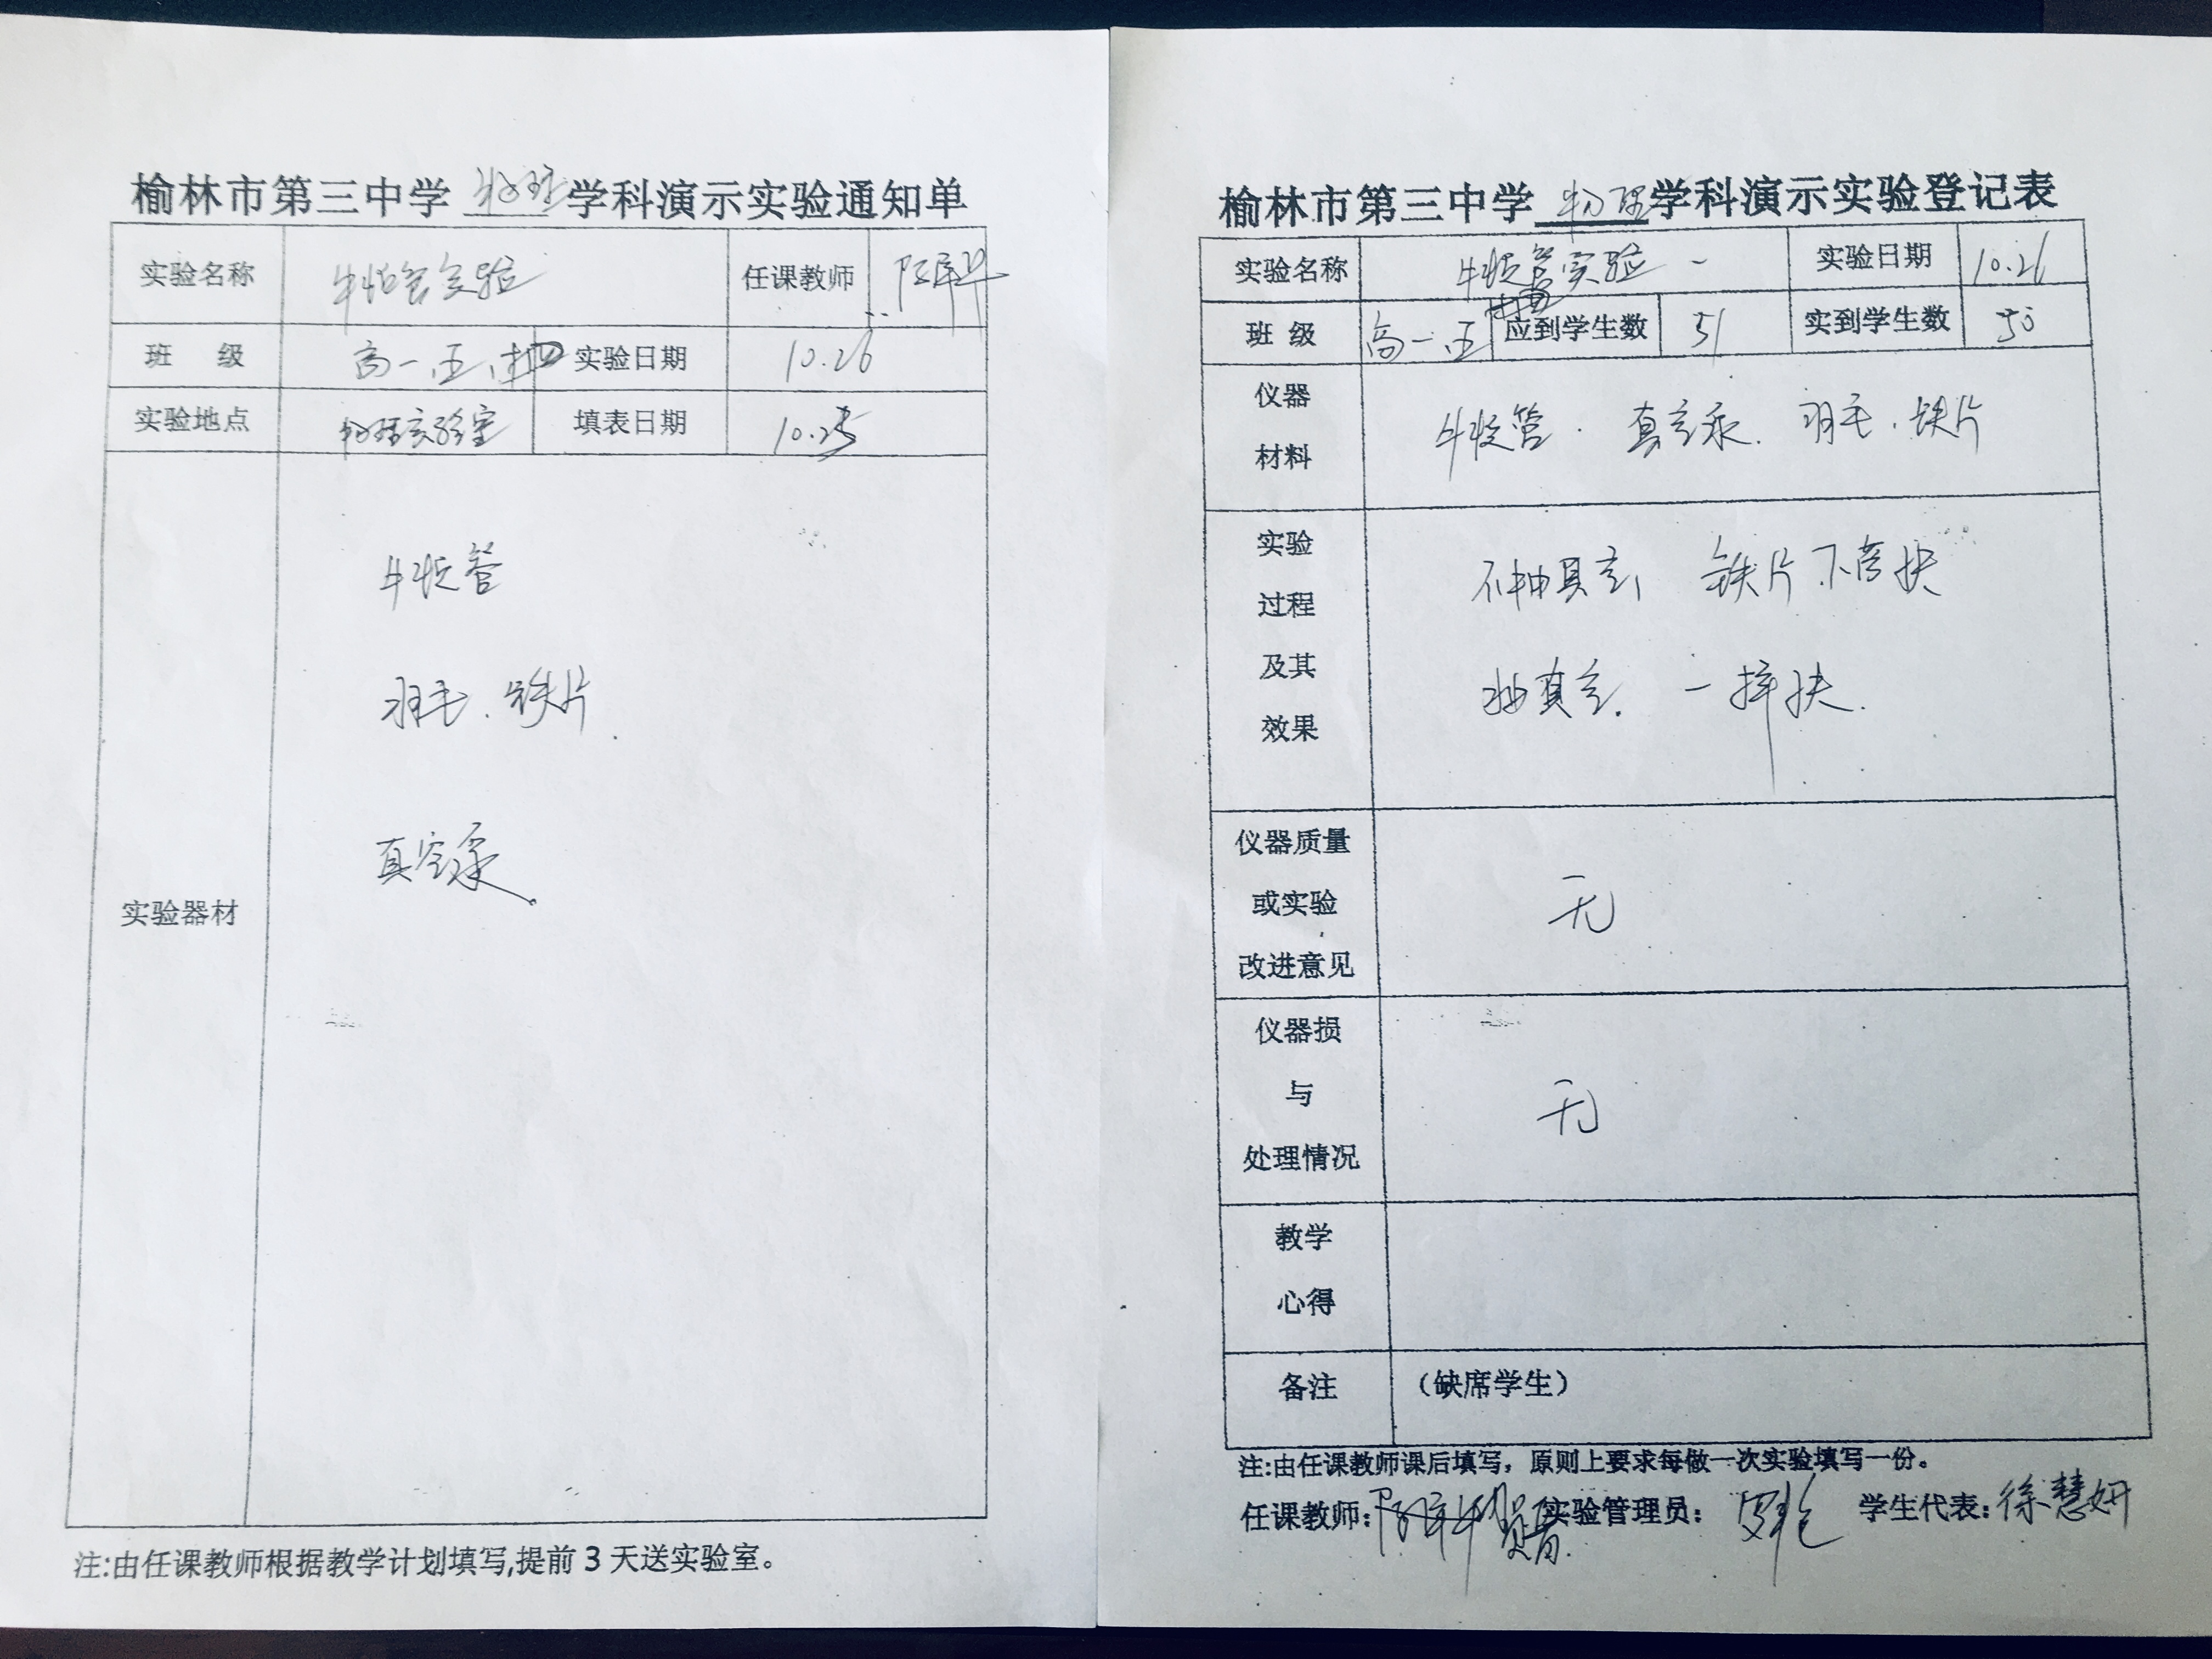 榆林市第三中学 物理 学科演示实验通知单
实验名称 牛顿管实验 任课教师
班 级 高一.五 实验日期 10.26
实验地点 物理实验室 填表日期 10.25
实验器材
牛顿管
羽毛.铁片
真空泵
注:由任课教师根据教学计划填写,提前3天送实验室。
榆林市第三中学 物理 学科演示实验登记表
实验名称 牛顿管实验 实验日期 10.26
班 级 高一.五 应到学生数 51 实到学生数 50
仪器
材料
牛顿管.真空泵.羽毛.铁片
实验
过程
及其
效果
不抽真空, 铁片下落快
抽真空. 一样快.
仪器质量
或实验
改进意见
无
仪器损
与
处理情况
无
教学
心得
备注 (缺席学生)
注:由任课教师课后填写，原则上要求每做一次实验填写一份。
任课教师: 实验管理员: 学生代表:徐慧妍